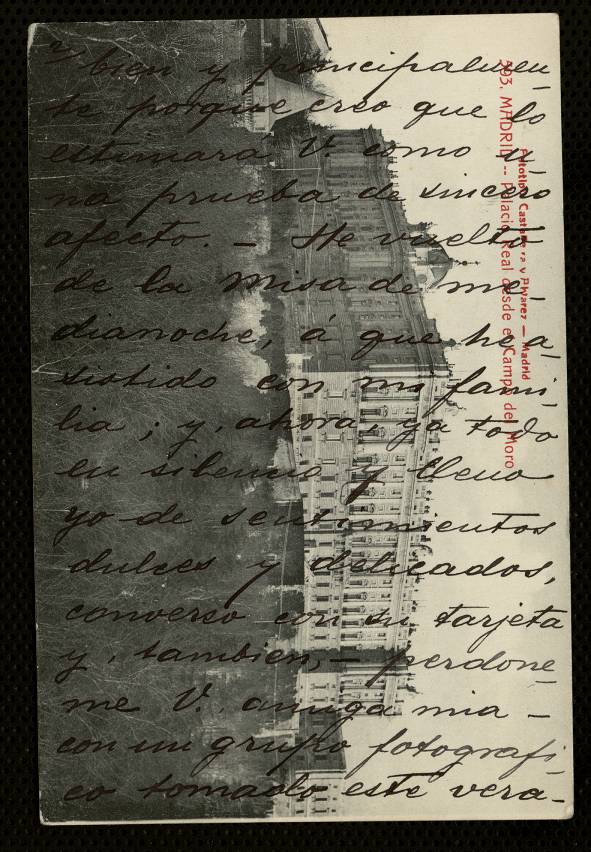 2/ bien y principalmen-
te porque creo que lo
estimará V. como u-
na prueba de sincero
afecto. — He vuelto
de la misa de me-
dianoche, á que he a-
sistido con mi fami-
lia; y, ahora, ya todo
en silencio y lleno
yo de sentimientos
dulces y delicados,
converso con su tarjeta
y, tambien, — perdone-
me V. amiga mia —
con un grupo fotográfi-
co tomado este vera-
393. MADRID -- Palacio Real desde el Campo del Moro
Fototipia Castañeira y Alvarez — Madrid